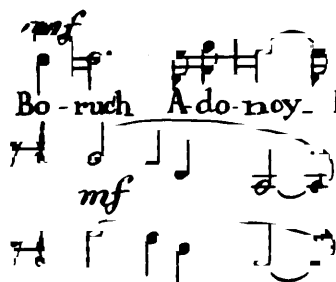 mf
Bo-ruch A-do-noy_
mf